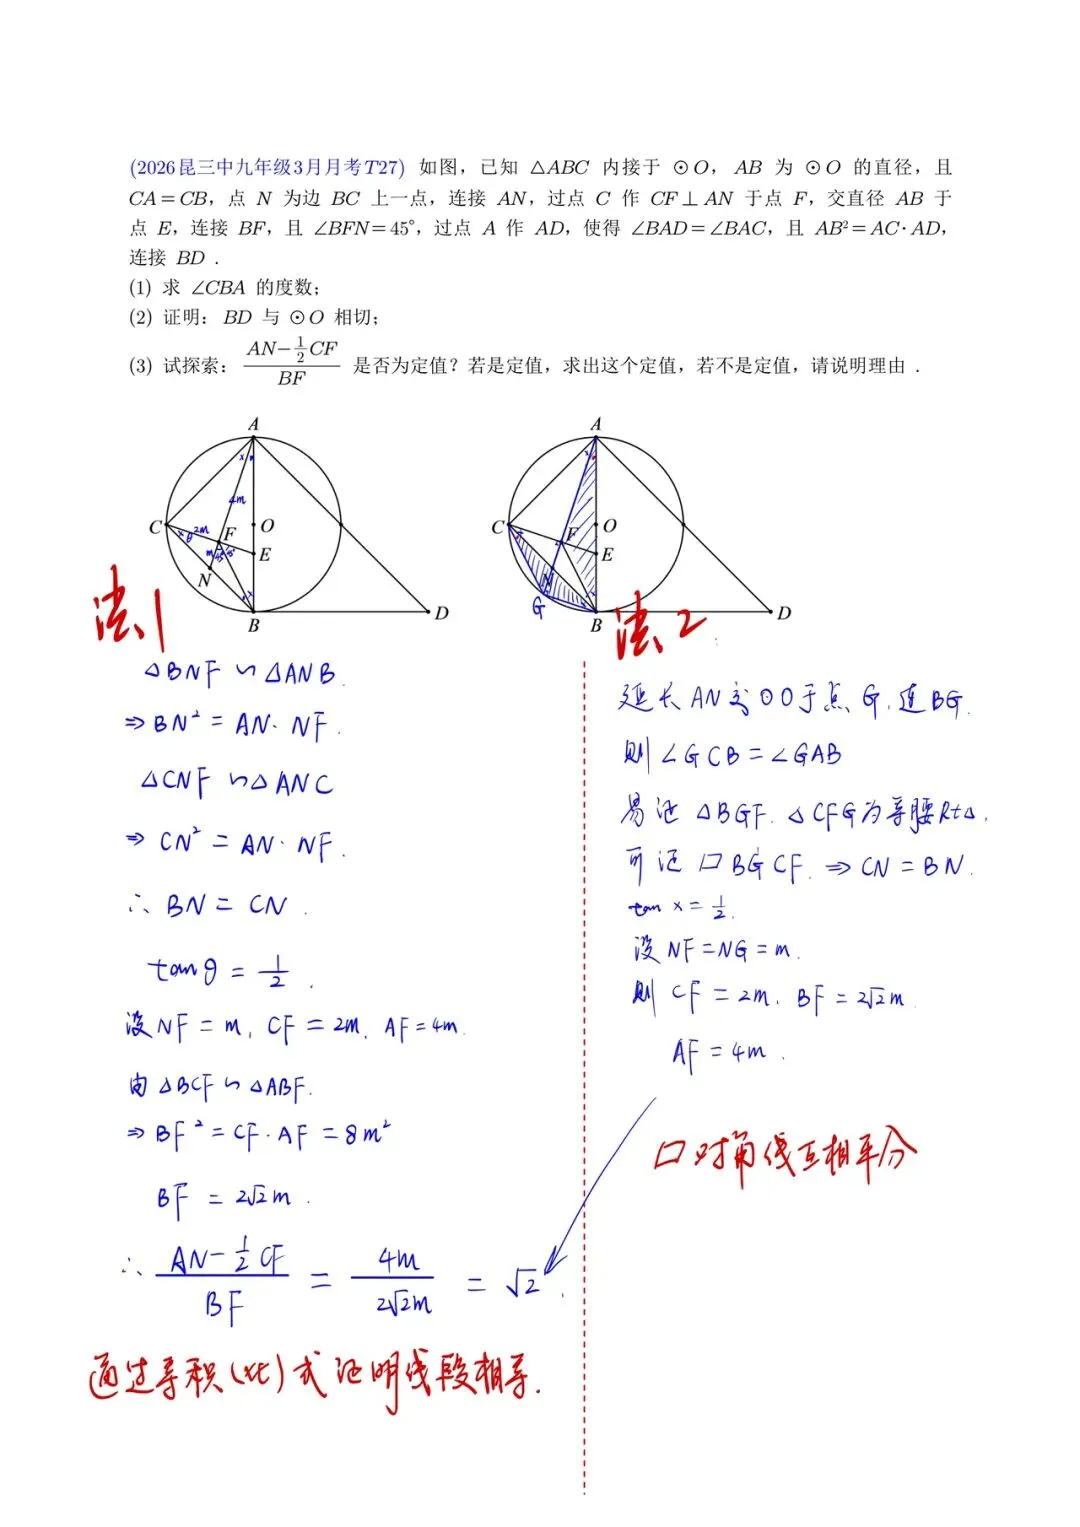 (2026昆三中九年级3月月考T27) 如图，已知 △ABC 内接于 ⊙O，AB 为 ⊙O 的直径，且
CA=CB，点 N 为边 BC 上一点，连接 AN，过点 C 作 CF⊥AN 于点 F，交直径 AB 于
点 E，连接 BF，且 ∠BFN=45°，过点 A 作 AD，使得 ∠BAD=∠BAC，且 AB²=AC·AD，
连接 BD．
(1) 求 ∠CBA 的度数；
(2) 证明：BD 与 ⊙O 相切；
(3) 试探索：(AN-½CF)/BF 是否为定值？若是定值，求出这个定值，若不是定值，请说明理由．
A
x
4m
C
x
θ
2m
F
m
45°
O
E
N
x
B
D
A
x
C
F
O
E
N
G
B
D
法1
△BNF∽△ANB.
⇒BN²=AN·NF.
△CNF∽△ANC
⇒CN²=AN·NF.
∴BN=CN.
tanθ=½.
设NF=m, CF=2m, AF=4m.
由△BCF∽△ABF.
⇒BF²=CF·AF=8m²
BF=2√2m.
∴(AN-½CF)/BF=4m/(2√2m)=√2.
通过等积(比)式证明线段相等.
法2
延长AN交⊙O于点G, 连BG.
则∠GCB=∠GAB
易证△BGF, △CFG为等腰Rt△.
可证▱BGCF.⇒CN=BN.
tan x=½.
设NF=NG=m.
则CF=2m, BF=2√2m
AF=4m.
▱对角线互相平分